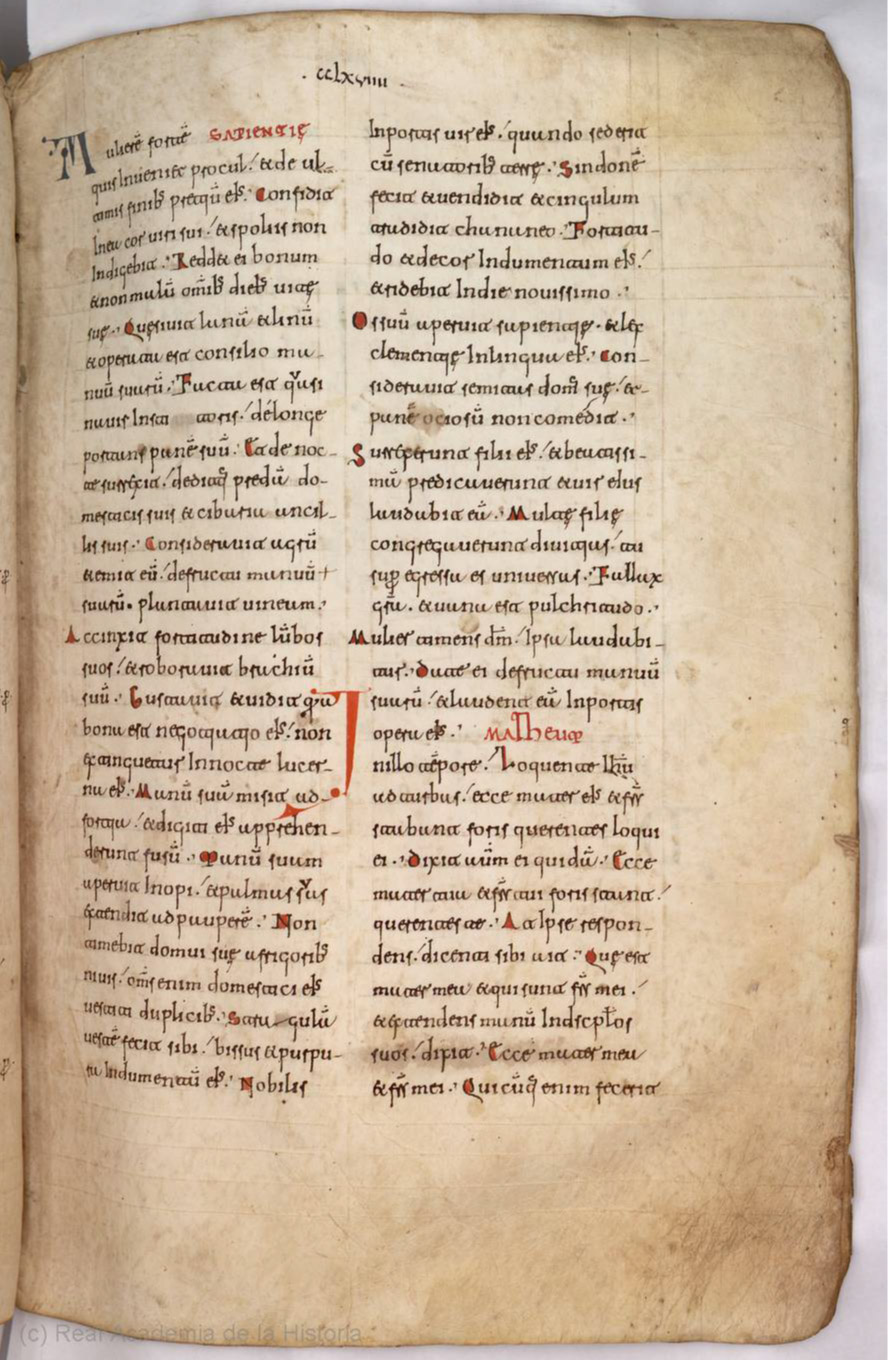 . cclxviiii .
Mulierē fortē SAPIENTIĘ
quis Inueniet procul / & de ul-
timis finib; pretiū eius. Confidit
In ea cor uiri sui / & spoliis non
Indigebit. Reddet ei bonum
& non malū omib; dieb; uitę
suę. Quęsiuit lanū & linū
& operata est consilio ma-
nuū suarū. Facta est qͣsi
nauis Insti toris / de longe
portans panē suū. Et de noc-
te surrexit / deditq; predā do-
mesticis suis & cibaria ancil-
lis suis. Considerauit agrū
& emit eū / de fructu manuū
suarū. plantauit uineam.
Accinxit fortitudine lūbos
suos / & roborauit brachiū
suū. Gustauit & uidit qͣa
bona est negotiatio eius / non
extinguetur In nocte lucer-
na eius. Manū suā misit ad
fortia / & digiti eius apprehen-
derunt fusū. Manū suam
aperuit Inopi / & palmas sͣas
extendit ad pauperē. Non
timebit domui suę a frigorib;
niuis / oms enim domestici eius
uestiti duplicib;. Stragulā
uestē fecit sibi / bissus & purpu-
ra Indumentū eius. Nobilis
In portis uir eius / quando sederit
cū senatorib; terrę. Sindonē
fecit & uendidit & cingulum
tradidit chananeo. Fortitu-
do & decor Indumentum eius /
& ridebit In die nouissimo.
Os suū aperuit sapientię. & lex
clementię In lingua eius. Con-
siderauit semitas dom suę / &
panē ociosū non comedit.
Surrexerunt filii eius / & beatissi-
mā predicauerunt & uir eius
laudabit eā. Multę filię
congregauerunt diuitias / tu
supergressa es uniuersas. Fallax
gra. & uana est pulchritudo.
Mulier timens dm / Ipsa laudabi-
tur. Date ei de fructu manuū
suarū / & laudent eā In portis
opera eius. MATheum
In illo tēpore / Loquente Ihu
ad turbas / ecce mater eius & frs
stabunt foris querentes loqui
ei. Dixit aūm ei quidā. Ecce
mater tua & frs tui foris stant /
querentes te. At Ipse respon-
dens / dicenti sibi ait. Quę est
mater mea & qui sunt frs mei /
& extendens manū In discplos
suos / dixit. Ecce mater mea
& frs mei. Quicūq; enim fecerit
(c) Real Academia de la Historia